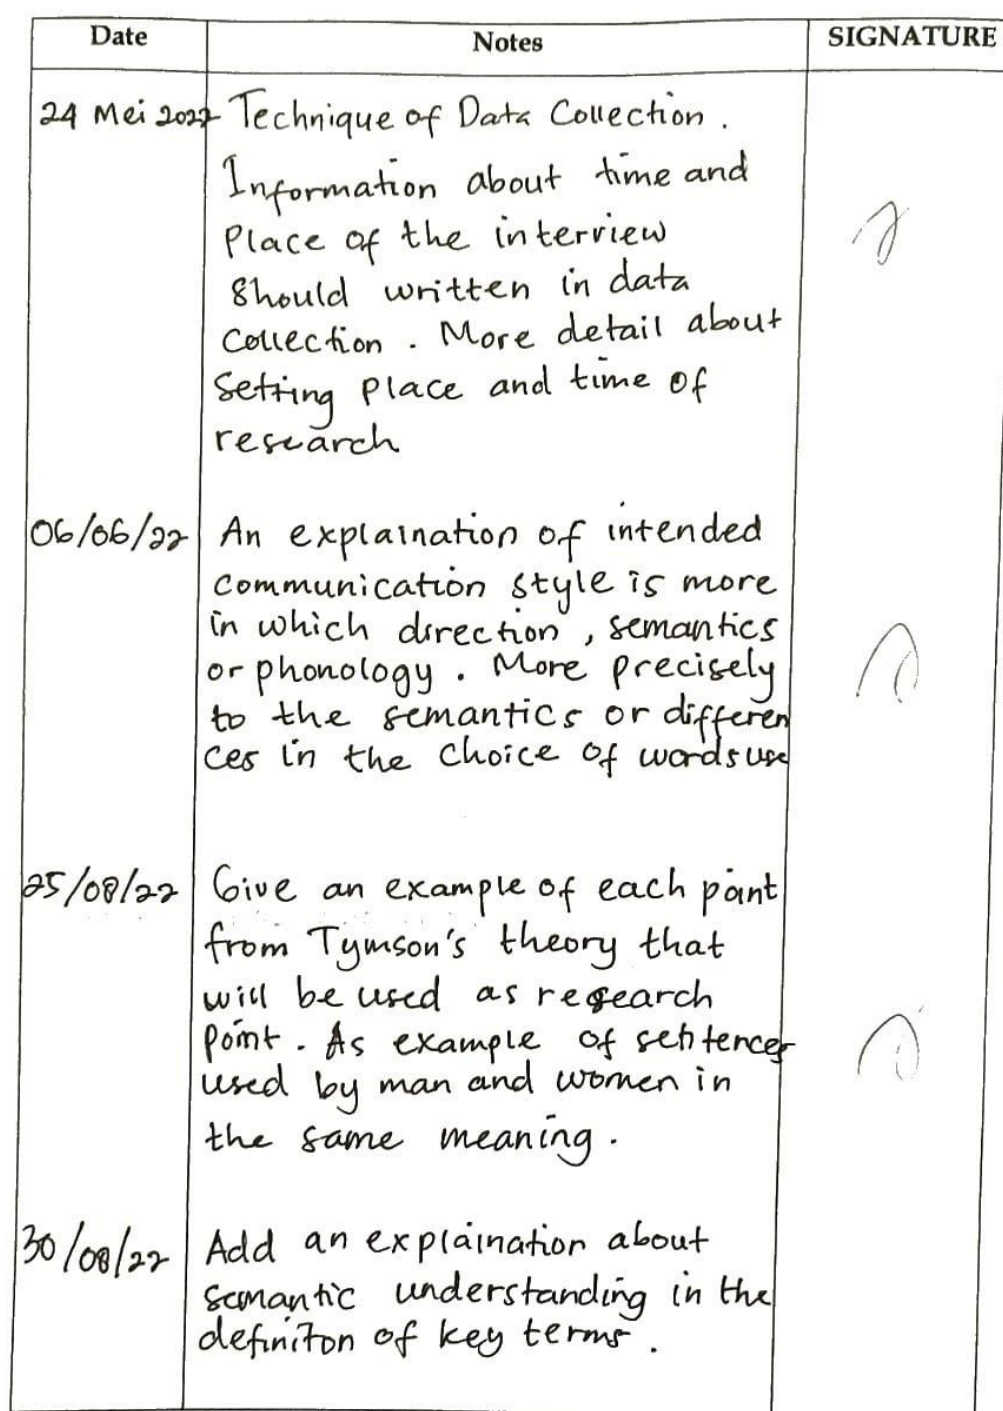 Date Notes SIGNATURE
24 Mei 2022 Technique of Data Collection.
Information about time and
Place of the interview
Should written in data
Collection. More detail about
Setting Place and time of
research
06/06/22 An explaination of intended
communication style is more
in which direction, semantics
or phonology. More precisely
to the semantics or differen
ces in the choice of words use
25/08/22 Give an example of each point
from Tymson's theory that
will be used as research
point. As example of sentences
used by man and women in
the same meaning.
30/08/22 Add an explaination about
semantic understanding in the
definiton of key terms.